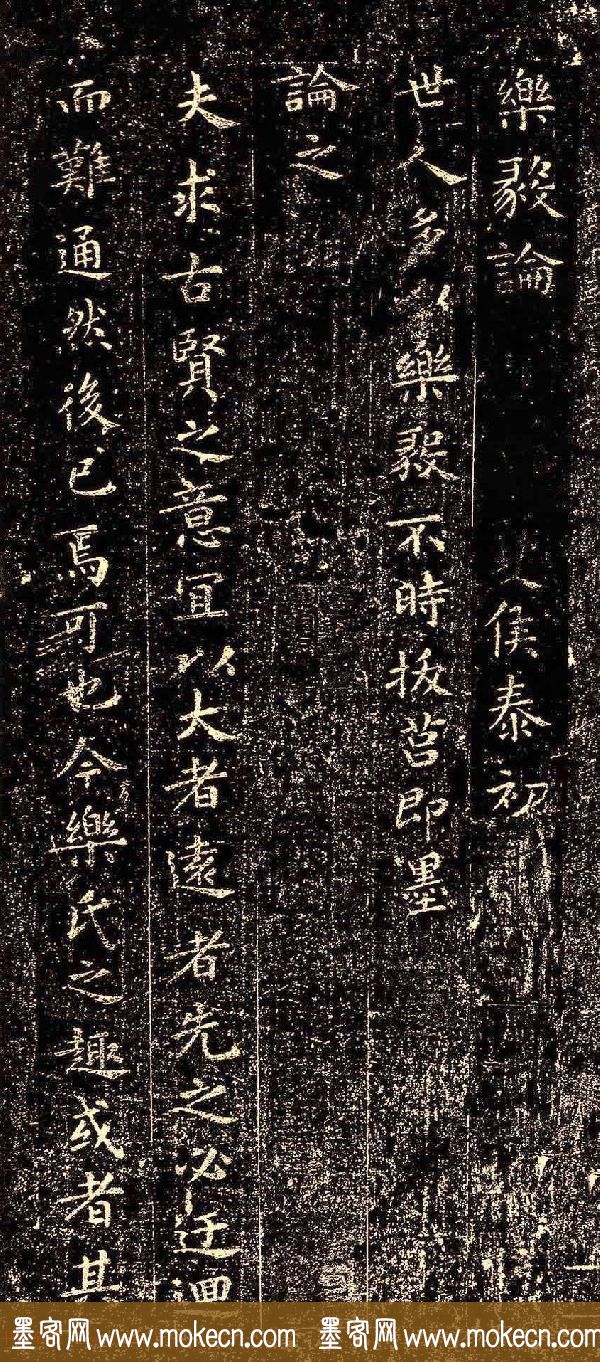 樂毅論 夏侯泰初
世人多以樂毅不時拔莒即墨
論之
夫求古賢之意宜以大者遠者先之必迂迴
而難通然後已焉可也今樂氏之趣或者其
墨客网 www.mokecn.com 墨客网 www.mokecn.com